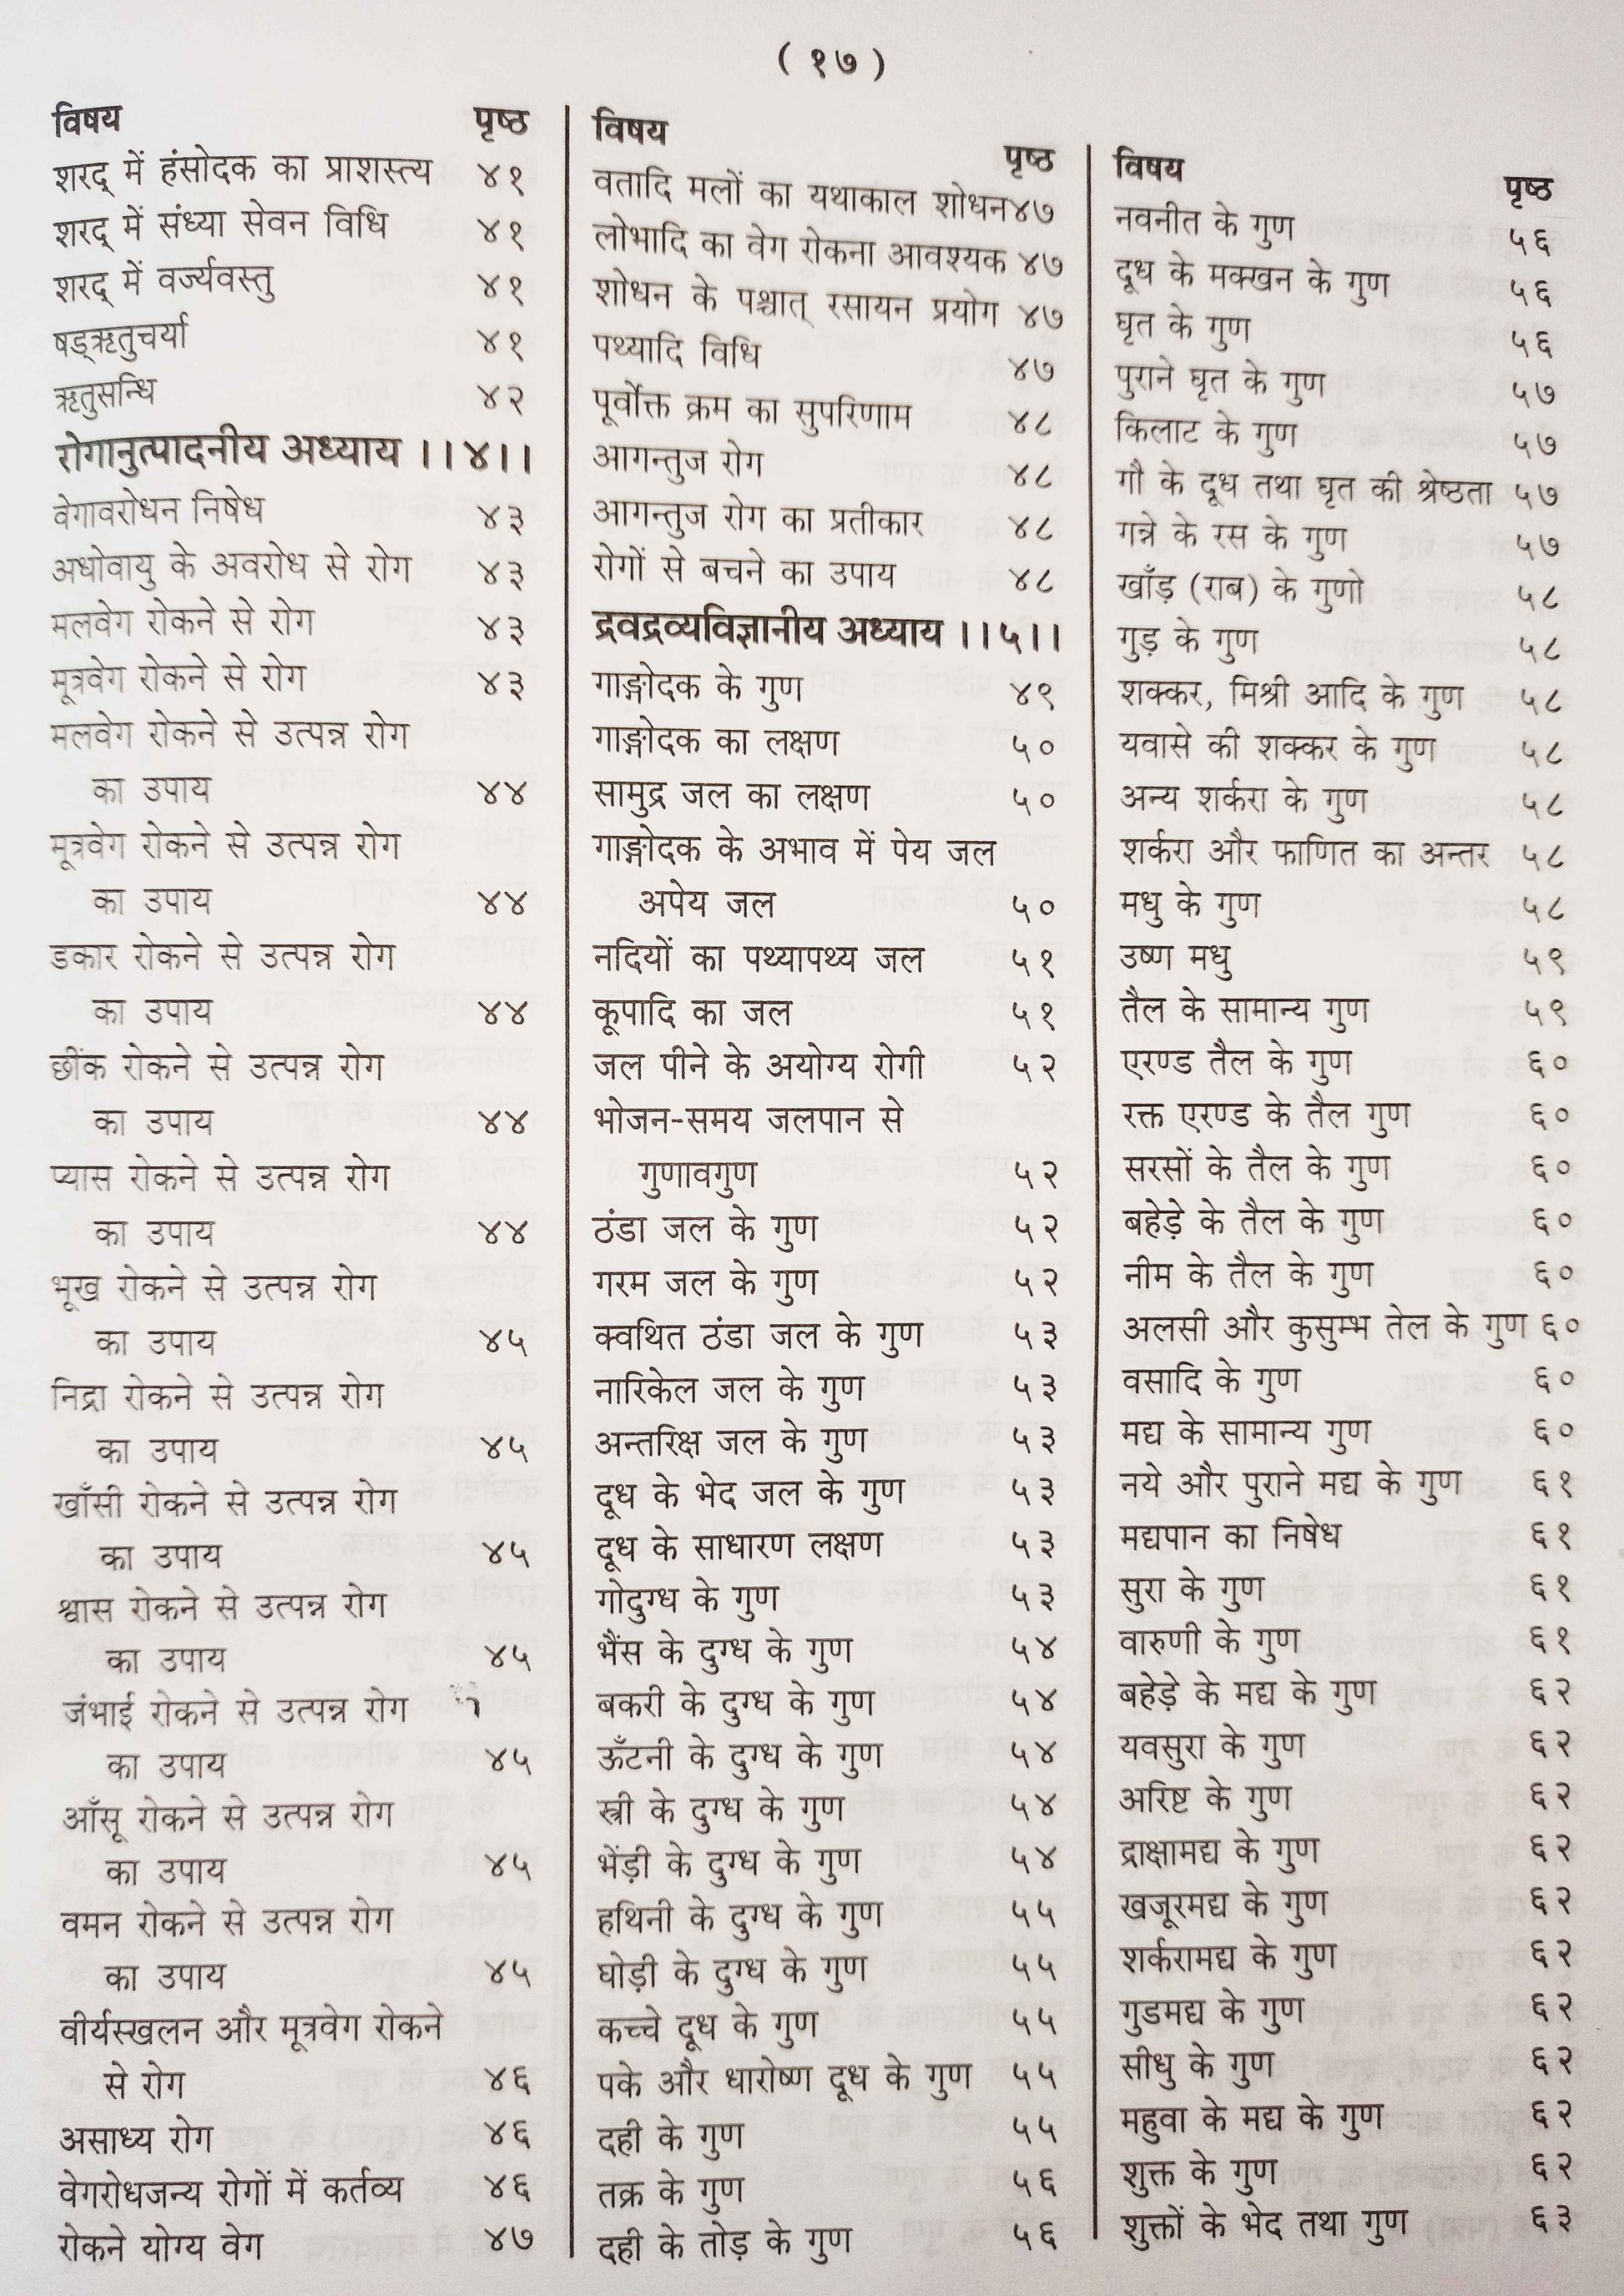 ( १७ )
विषय पृष्ठ
शरद् में हंसोदक का प्राशस्त्य ४१
शरद् में संध्या सेवन विधि ४१
शरद् में वर्ज्यवस्तु ४१
षड्ऋतुचर्या ४१
ऋतुसन्धि ४२
रोगानुत्पादनीय अध्याय ।।४।।
वेगावरोधन निषेध ४३
अधोवायु के अवरोध से रोग ४३
मलवेग रोकने से रोग ४३
मूत्रवेग रोकने से रोग ४३
मलवेग रोकने से उत्पन्न रोग
का उपाय ४४
मूत्रवेग रोकने से उत्पन्न रोग
का उपाय ४४
डकार रोकने से उत्पन्न रोग
का उपाय ४४
छींक रोकने से उत्पन्न रोग
का उपाय ४४
प्यास रोकने से उत्पन्न रोग
का उपाय ४४
भूख रोकने से उत्पन्न रोग
का उपाय ४५
निद्रा रोकने से उत्पन्न रोग
का उपाय ४५
खाँसी रोकने से उत्पन्न रोग
का उपाय ४५
श्वास रोकने से उत्पन्न रोग
का उपाय ४५
जंभाई रोकने से उत्पन्न रोग
का उपाय ४५
आँसू रोकने से उत्पन्न रोग
का उपाय ४५
वमन रोकने से उत्पन्न रोग
का उपाय ४५
वीर्यस्खलन और मूत्रवेग रोकने
से रोग ४६
असाध्य रोग ४६
वेगरोधजन्य रोगों में कर्तव्य ४६
रोकने योग्य वेग ४७
विषय पृष्ठ
वतादि मलों का यथाकाल शोधन४७
लोभादि का वेग रोकना आवश्यक ४७
शोधन के पश्चात् रसायन प्रयोग ४७
पथ्यादि विधि ४७
पूर्वोक्त क्रम का सुपरिणाम ४८
आगन्तुज रोग ४८
आगन्तुज रोग का प्रतीकार ४८
रोगों से बचने का उपाय ४८
द्रवद्रव्यविज्ञानीय अध्याय ।।५।।
गाङ्गोदक के गुण ४९
गाङ्गोदक का लक्षण ५०
सामुद्र जल का लक्षण ५०
गाङ्गोदक के अभाव में पेय जल
अपेय जल ५०
नदियों का पथ्यापथ्य जल ५१
कूपादि का जल ५१
जल पीने के अयोग्य रोगी ५२
भोजन-समय जलपान से
गुणावगुण ५२
ठंडा जल के गुण ५२
गरम जल के गुण ५२
क्वथित ठंडा जल के गुण ५३
नारिकेल जल के गुण ५३
अन्तरिक्ष जल के गुण ५३
दूध के भेद जल के गुण ५३
दूध के साधारण लक्षण ५३
गोदुग्ध के गुण ५३
भैंस के दुग्ध के गुण ५४
बकरी के दुग्ध के गुण ५४
ऊँटनी के दुग्ध के गुण ५४
स्त्री के दुग्ध के गुण ५४
भेंड़ी के दुग्ध के गुण ५४
हथिनी के दुग्ध के गुण ५५
घोड़ी के दुग्ध के गुण ५५
कच्चे दूध के गुण ५५
पके और धारोष्ण दूध के गुण ५५
दही के गुण ५५
तक्र के गुण ५६
दही के तोड़ के गुण ५६
विषय पृष्ठ
नवनीत के गुण ५६
दूध के मक्खन के गुण ५६
घृत के गुण ५६
पुराने घृत के गुण ५७
किलाट के गुण ५७
गौ के दूध तथा घृत की श्रेष्ठता ५७
गन्ने के रस के गुण ५७
खाँड़ (राब) के गुणो ५८
गुड़ के गुण ५८
शक्कर, मिश्री आदि के गुण ५८
यवासे की शक्कर के गुण ५८
अन्य शर्करा के गुण ५८
शर्करा और फाणित का अन्तर ५८
मधु के गुण ५८
उष्ण मधु ५९
तैल के सामान्य गुण ५९
एरण्ड तैल के गुण ६०
रक्त एरण्ड के तैल गुण ६०
सरसों के तैल के गुण ६०
बहेड़े के तैल के गुण ६०
नीम के तैल के गुण ६०
अलसी और कुसुम्भ तेल के गुण ६०
वसादि के गुण ६०
मद्य के सामान्य गुण ६०
नये और पुराने मद्य के गुण ६१
मद्यपान का निषेध ६१
सुरा के गुण ६१
वारुणी के गुण ६१
बहेड़े के मद्य के गुण ६२
यवसुरा के गुण ६२
अरिष्ट के गुण ६२
द्राक्षामद्य के गुण ६२
खजूरमद्य के गुण ६२
शर्करामद्य के गुण ६२
गुडमद्य के गुण ६२
सीधु के गुण ६२
महुवा के मद्य के गुण ६२
शुक्त के गुण ६२
शुक्तों के भेद तथा गुण ६३